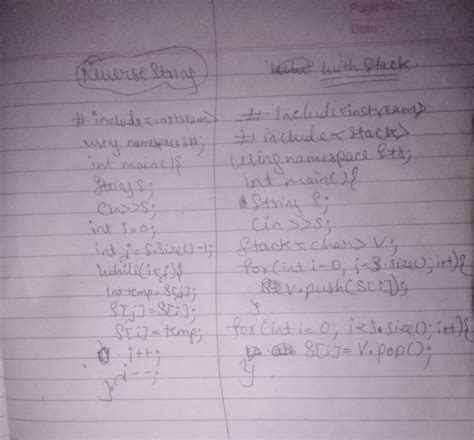 Page No.
Date
Reverse String
# include<iostream>
using namespace std;
int main(){
String S;
Cin>>S;
int i=0;
int j=S.Size()-1;
while(i<j){
int temp=S[j];
S[j]=S[i];
S[i]=temp;
i++;
j--;
}
with Stack
# include<iostream>
# include<Stack>
using namespace Std;
int main(){
String S;
Cin>>S;
Stack<char> V;
for(int i=0, i<S.size(); i++){
V.push(S[i]);
}
for(int i=0, i<S.size(); i++){
S[i]=V.pop();
}